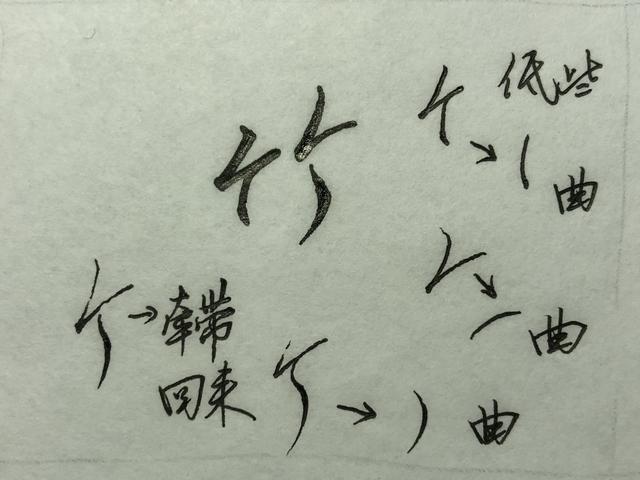 低些
曲
竹
曲
牵带
回来
曲